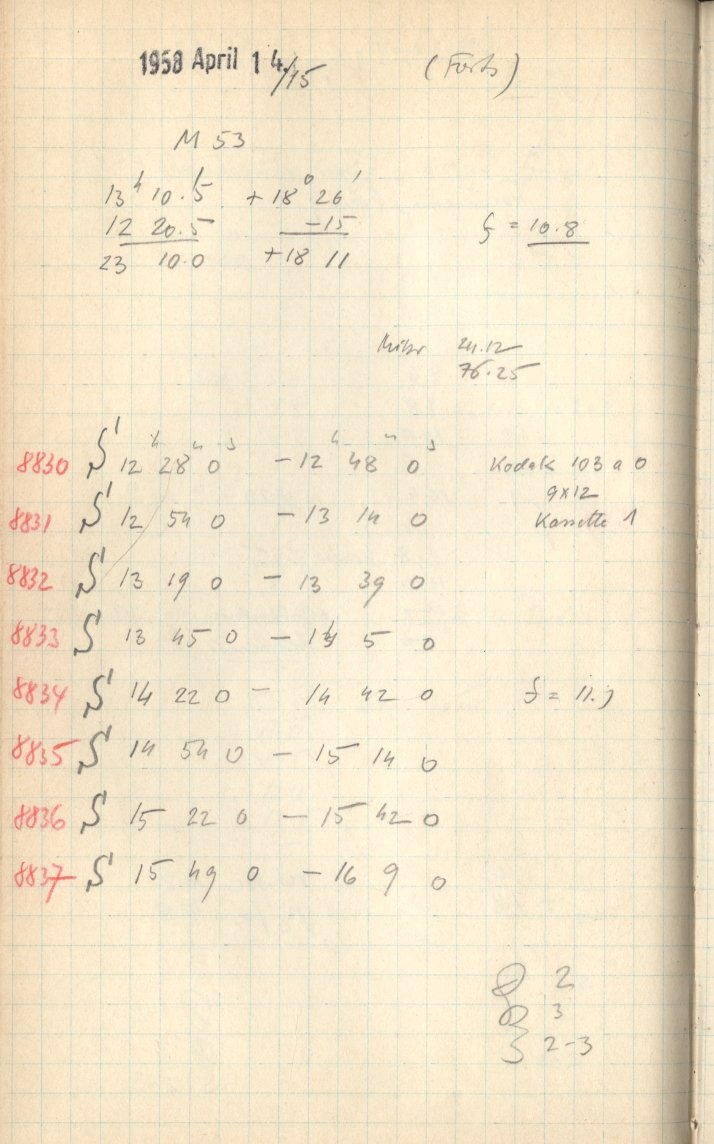 1958 April 14./15 (Forts)
M 53
13ʰ 10.5 +18° 26'
12 20.5 -15 f = 10.8
23 10.0 +18 11
Mikr 24.12
76.25
8830 S' 12ʰ 28ᵐ 0ˢ - 12ʰ 48ᵐ 0ˢ Kodak 103 a 0
9x12
8831 S' 12 54 0 - 13 14 0 Kassette 1
8832 S' 13 19 0 - 13 39 0
8833 S' 13 45 0 - 14 5 0
8834 S' 14 22 0 - 14 42 0 f = 11.
8835 S' 14 54 0 - 15 14 0
8836 S' 15 22 0 - 15 42 0
8837 S' 15 49 0 - 16 9 0
2
3
2-3